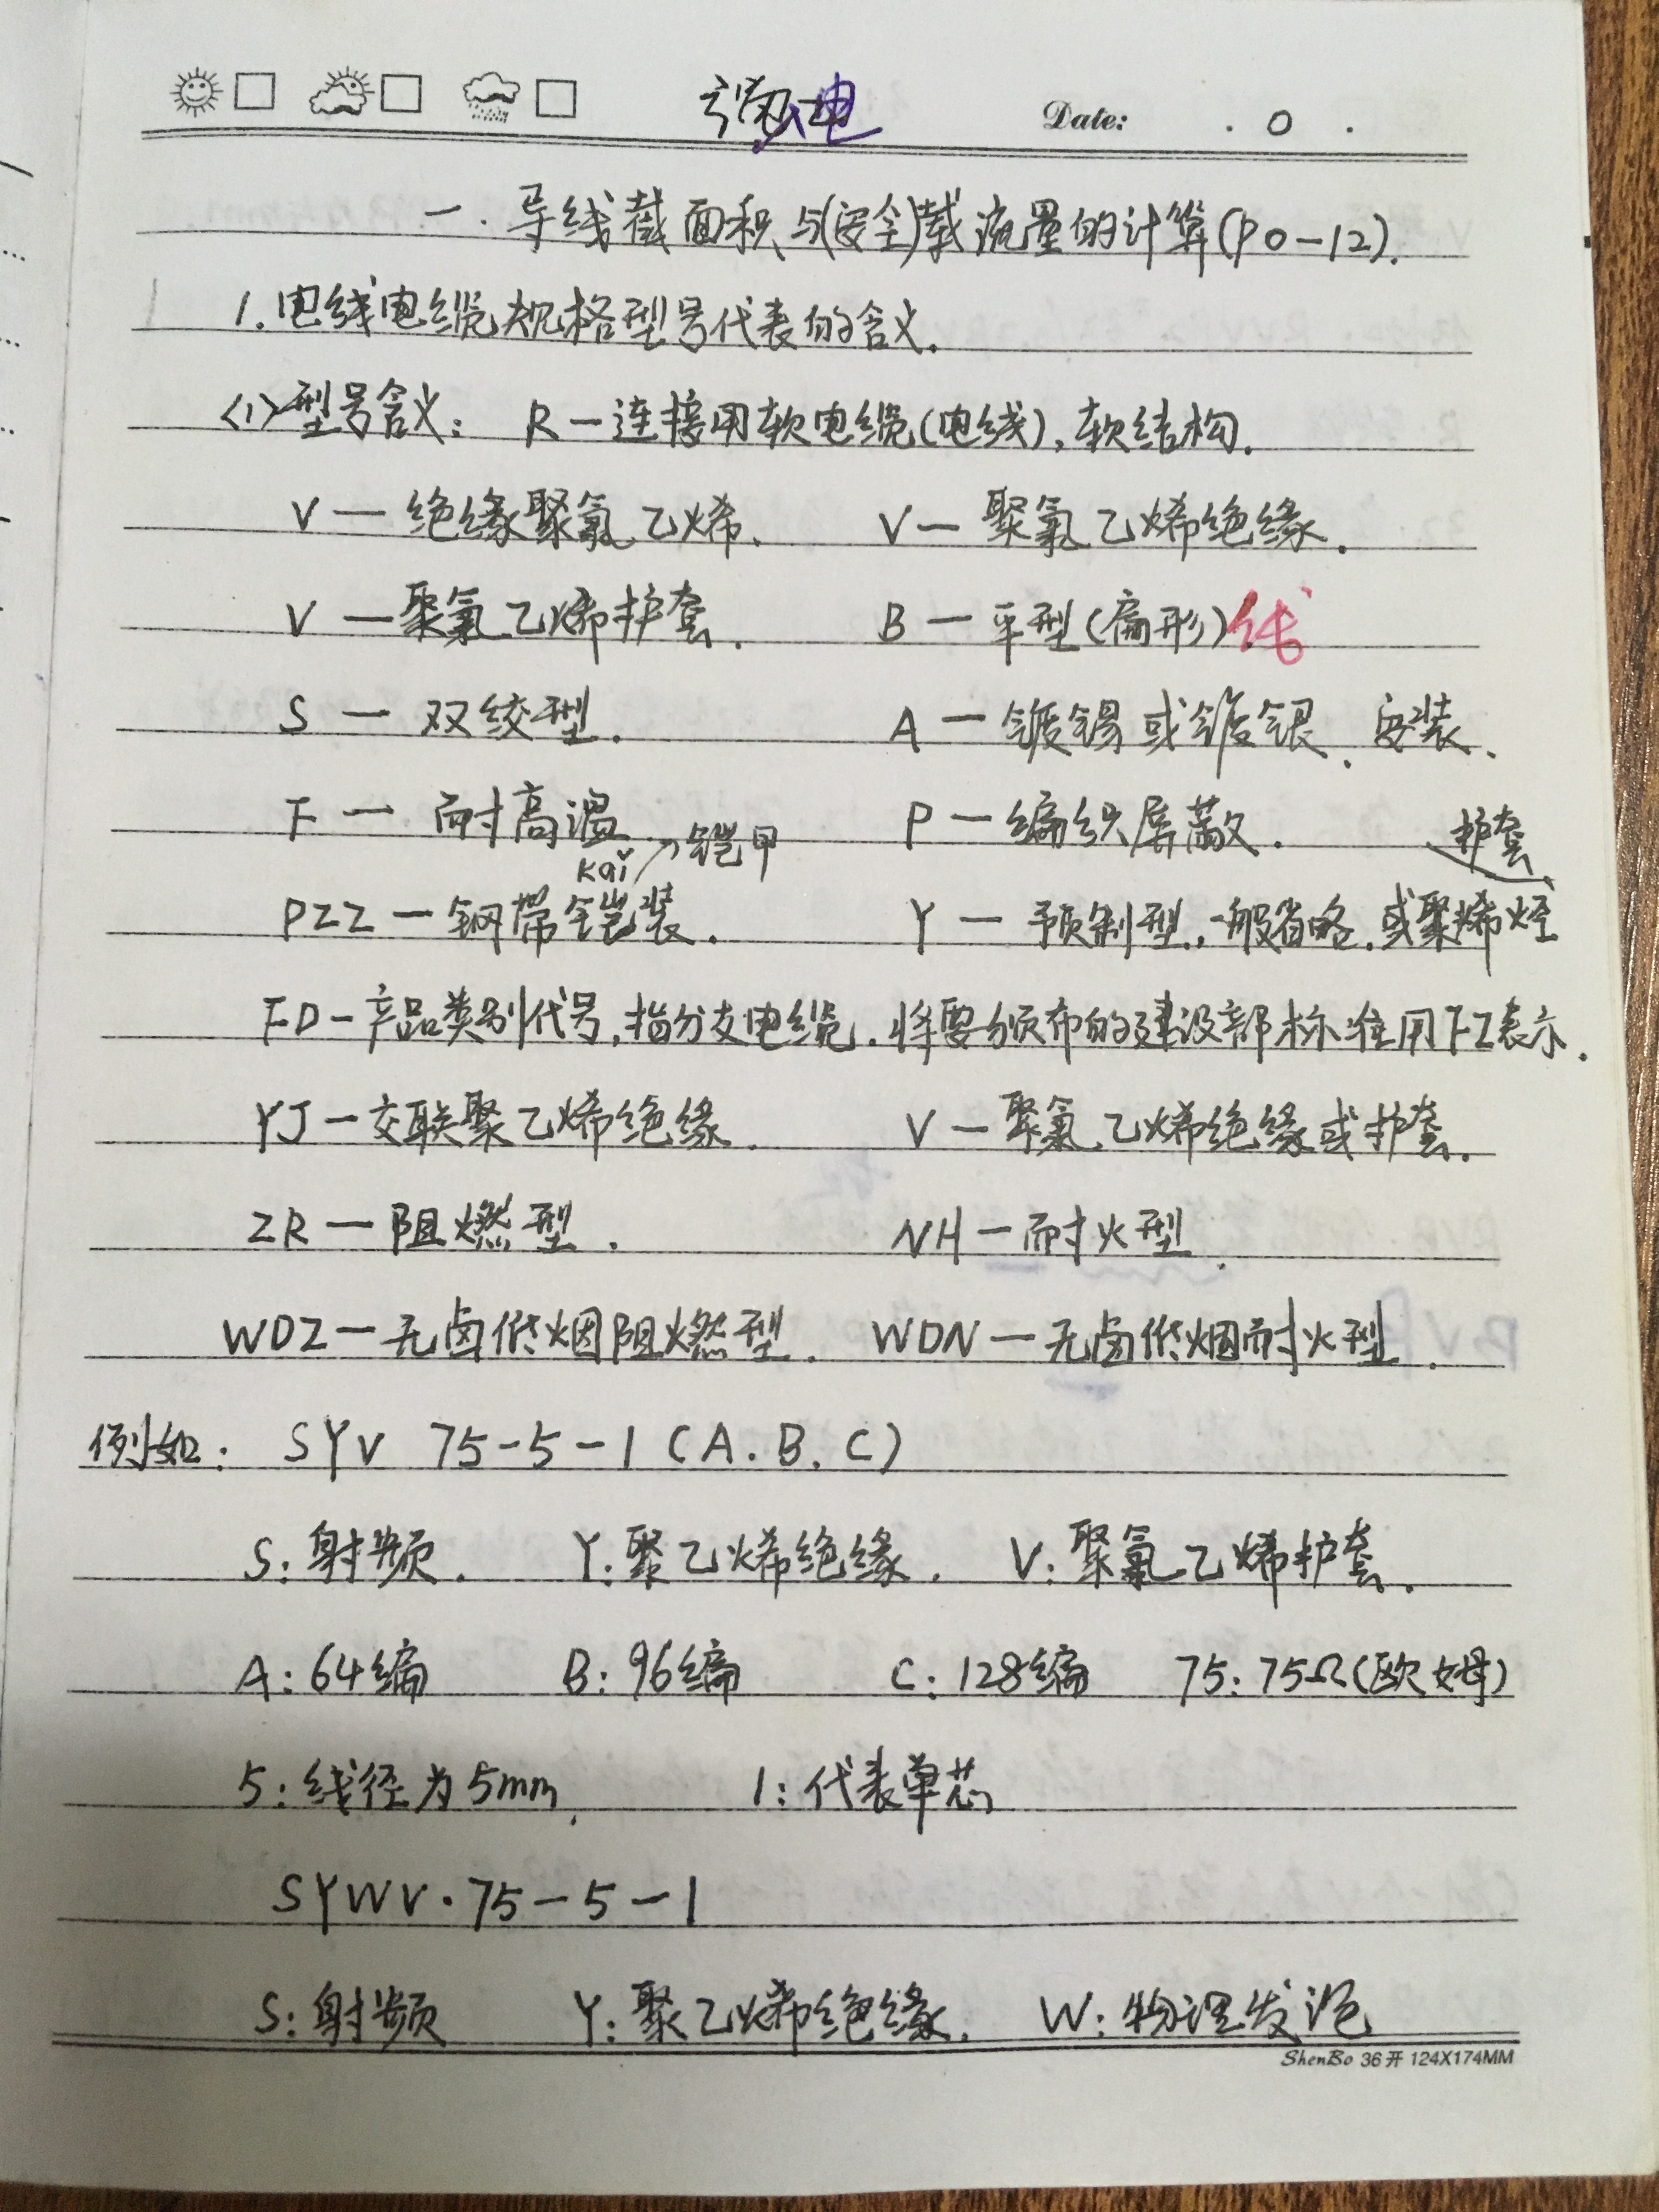 强电
Date: . 0 .
一. 导线截面积与(安全)载流量的计算(P0-12).
1. 电线电缆规格型号代表的含义.
<1>型号含义: R—连接用软电缆(电线), 软结构.
V — 绝缘聚氯乙烯. V — 聚氯乙烯绝缘.
V — 聚氯乙烯护套. B — 平型(扁形)线
S — 双绞型. A — 镀锡或镀银. 安装.
F — 耐高温 P — 编织屏蔽. 护套
kǎi 铠甲
PZZ — 钢带铠装. Y — 预制型, 一般省略, 或聚烯烃
FD-产品类别代号, 指分支电缆. 将要颁布的建设部标准用FZ表示.
YJ — 交联聚乙烯绝缘. V — 聚氯乙烯绝缘或护套.
ZR — 阻燃型. NH — 耐火型.
WDZ — 无卤低烟阻燃型. WDN — 无卤低烟耐火型.
例如: SYV 75-5-1 (A. B. C)
S: 射频. Y: 聚乙烯绝缘. V: 聚氯乙烯护套.
A: 64编 B: 96编 C: 128编 75: 75Ω(欧姆)
5: 线径为5mm. 1: 代表单芯
SYWV·75-5-1
S: 射频 Y: 聚乙烯绝缘. W: 物理发泡
ShenBo 36开 124X174MM